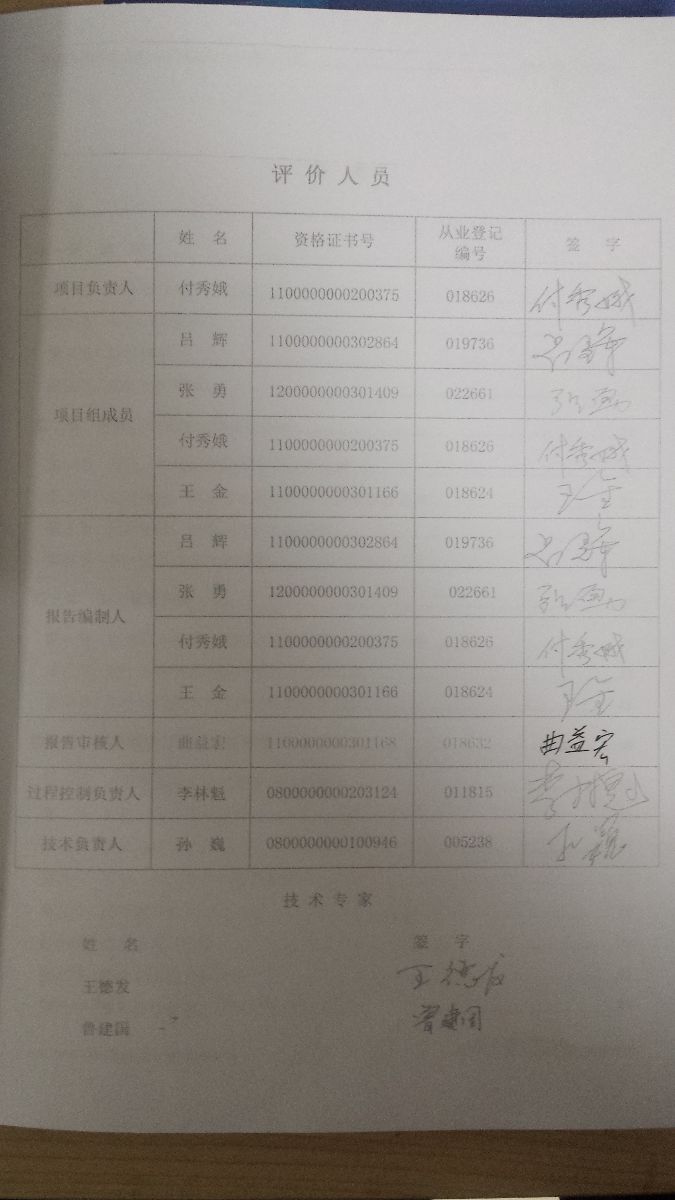 评价人员
姓名 资格证书号 从业登记编号 签字
项目负责人 付秀娥 1100000000200375 018626 付秀娥
项目组成员 吕辉 1100000000302864 019736 吕辉
张勇 1200000000301409 022661 张勇
付秀娥 1100000000200375 018626 付秀娥
王金 1100000000301166 018624 王金
报告编制人 吕辉 1100000000302864 019736 吕辉
张勇 1200000000301409 022661 张勇
付秀娥 1100000000200375 018626 付秀娥
王金 1100000000301166 018624 王金
报告审核人 曲益宏 1100000000301168 018632 曲益宏
过程控制负责人 李林魁 0800000000203124 011815 李林魁
技术负责人 孙巍 0800000000100946 005238 孙巍
技术专家
姓名 签字
王德发 王德发
曾建国 曾建国